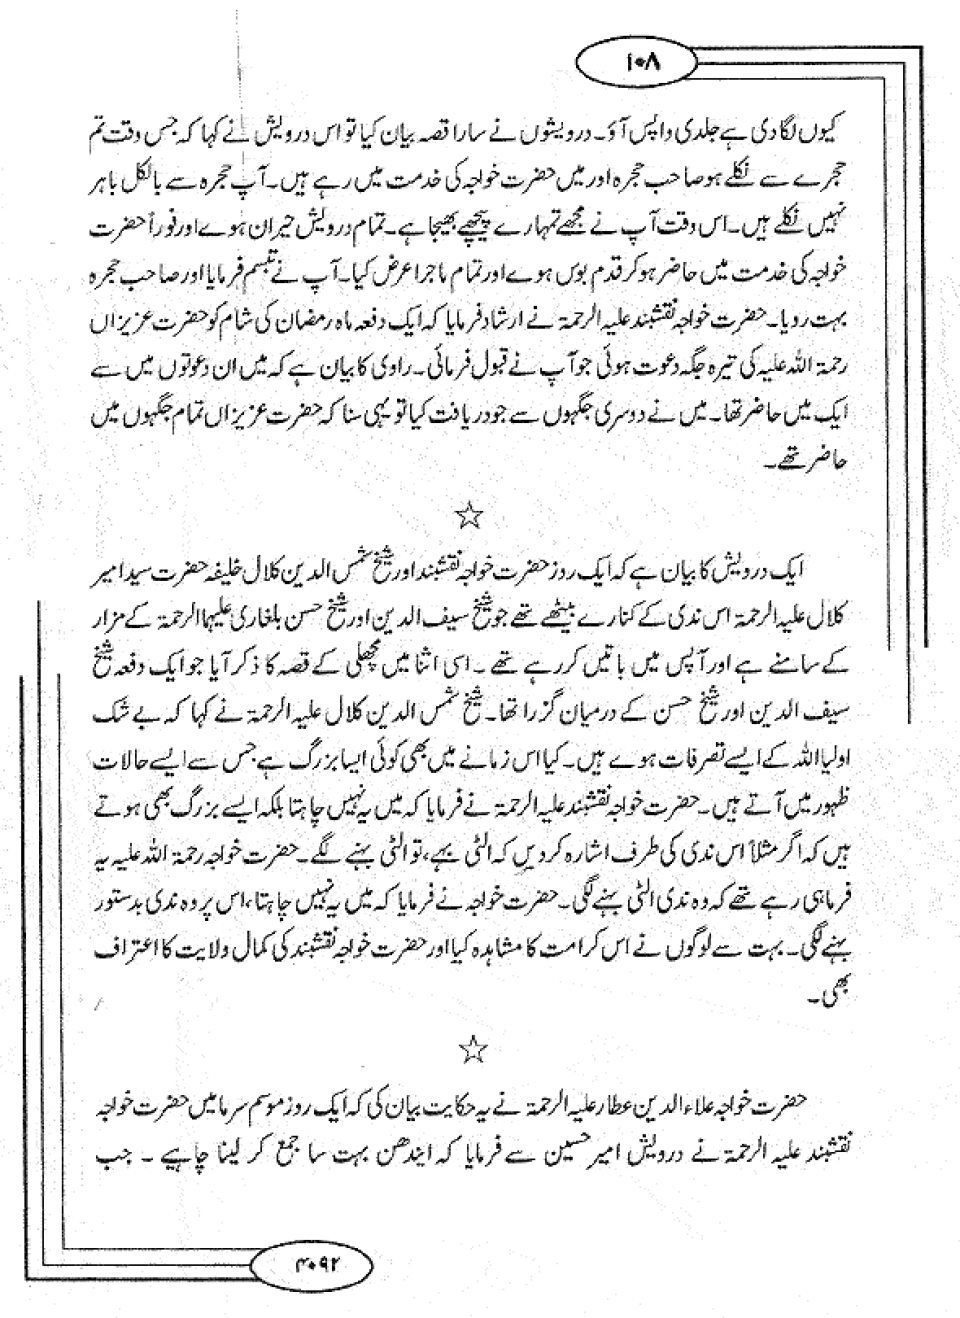 ۱۰۸
کیوں لگا دی ہے جلدی واپس آؤ۔ درویشوں نے سارا قصہ بیان کیا تو اس درویش نے کہا کہ جس وقت تم
حجرے سے نکلے ہو صاحب حجرہ اور میں حضرت خواجہ کی خدمت میں رہے ہیں۔ آپ حجرہ سے بالکل باہر
نہیں نکلے ہیں۔ اس وقت آپ نے مجھے تمہارے پیچھے بھیجا ہے۔ تمام درویش حیران ہوے اور فوراً حضرت
خواجہ کی خدمت میں حاضر ہو کر قدم بوس ہوے اور تمام ماجرا عرض کیا۔ آپ نے تبسم فرمایا اور صاحب حجرہ
بہت رویا۔ حضرت خواجہ نقشبند علیہ الرحمۃ نے ارشاد فرمایا کہ ایک دفعہ ماہ رمضان کی شام کو حضرت عزیزاں
رحمۃ اللہ علیہ کی تیرہ جگہ دعوت ہوئی جو آپ نے قبول فرمائی۔ راوی کا بیان ہے کہ میں ان دعوتوں میں سے
ایک میں حاضر تھا۔ میں نے دوسری جگہوں سے جو دریافت کیا تو یہی سنا کہ حضرت عزیزاں تمام جگہوں میں
حاضر تھے۔
☆
ایک درویش کا بیان ہے کہ ایک روز حضرت خواجہ نقشبند اور شیخ شمس الدین کلال خلیفہ حضرت سید امیر
کلال علیہ الرحمۃ اس ندی کے کنارے بیٹھے تھے جو شیخ سیف الدین اور شیخ حسن بلغاری علیہما الرحمۃ کے مزار
کے سامنے ہے اور آپس میں باتیں کر رہے تھے۔ اسی اثنا میں مچھلی کے قصہ کا ذکر آیا جو ایک دفعہ شیخ
سیف الدین اور شیخ حسن کے درمیان گزرا تھا۔ شیخ شمس الدین کلال علیہ الرحمۃ نے کہا کہ بے شک
اولیا اللہ کے ایسے تصرفات ہوے ہیں۔ کیا اس زمانے میں بھی کوئی ایسا بزرگ ہے جس سے ایسے حالات
ظہور میں آتے ہیں۔ حضرت خواجہ نقشبند علیہ الرحمۃ نے فرمایا کہ میں یہ نہیں چاہتا بلکہ ایسے بزرگ بھی ہوتے
ہیں کہ اگر مثلاً اس ندی کی طرف اشارہ کر دیں کہ الٹی بہے، تو الٹی بہنے لگے۔ حضرت خواجہ رحمۃ اللہ علیہ یہ
فرما ہی رہے تھے کہ وہ ندی الٹی بہنے لگی۔ حضرت خواجہ نے فرمایا کہ میں یہ نہیں چاہتا، اس پر وہ ندی بدستور
بہنے لگی۔ بہت سے لوگوں نے اس کرامت کا مشاہدہ کیا اور حضرت خواجہ نقشبند کی کمال ولایت کا اعتراف
بھی۔
☆
حضرت خواجہ علاء الدین عطار علیہ الرحمۃ نے یہ حکایت بیان کی کہ ایک روز موسم سرما میں حضرت خواجہ
نقشبند علیہ الرحمۃ نے درویش امیر حسین سے فرمایا کہ ایندھن بہت سا جمع کر لینا چاہیے۔ جب
۴۰۹۲